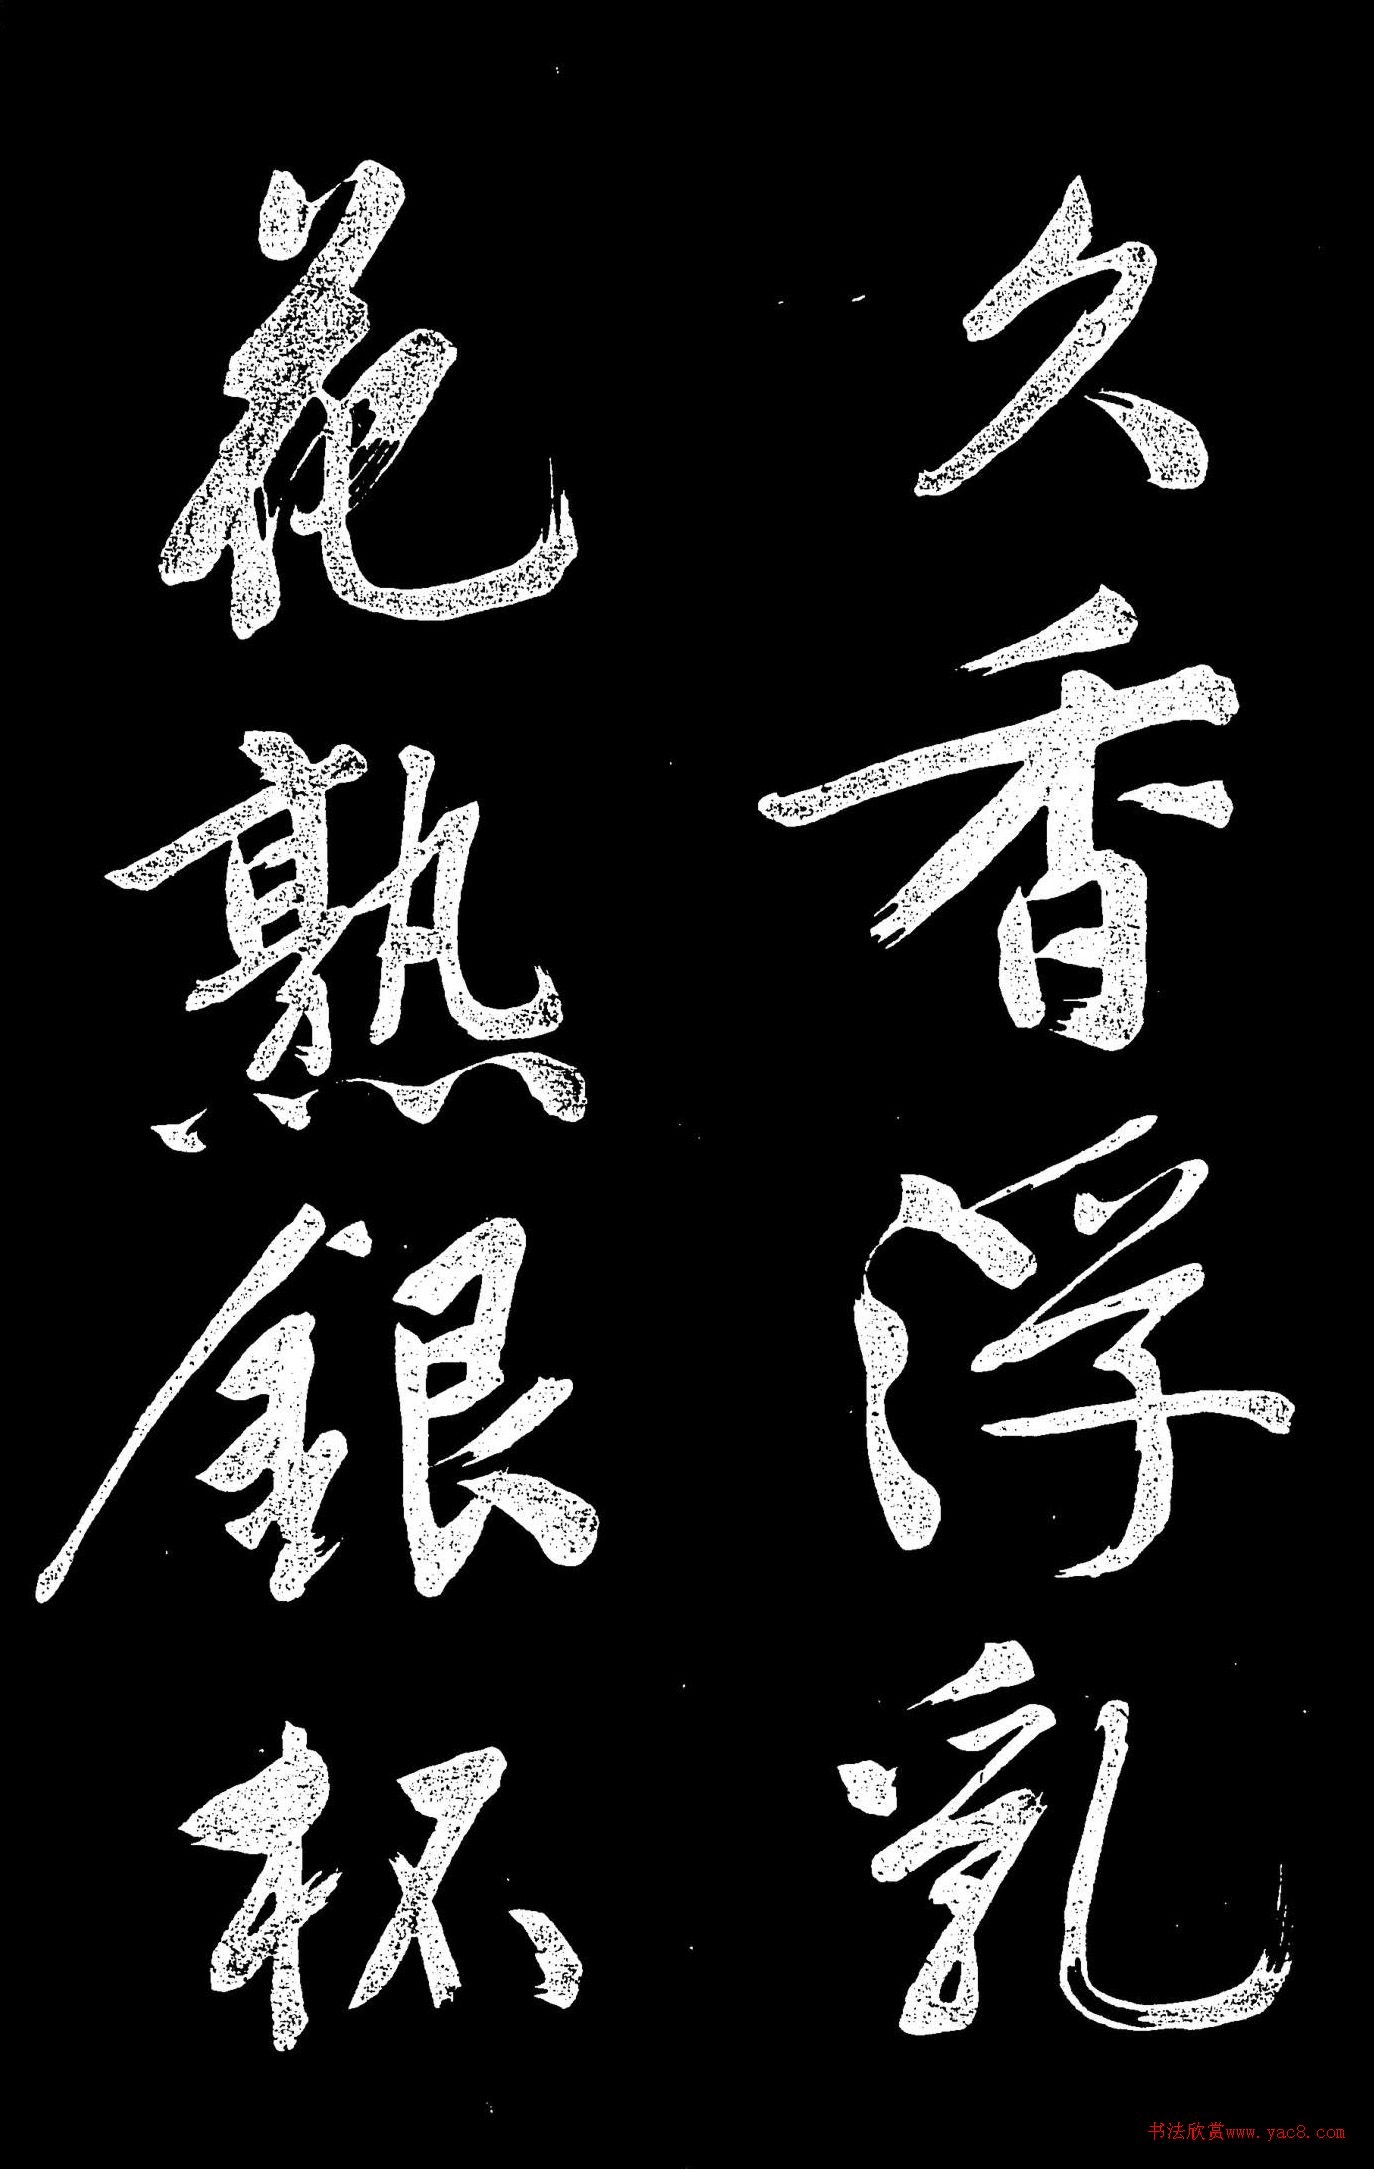 久香浮乳
花熟銀杯
书法欣赏www.yac8.com